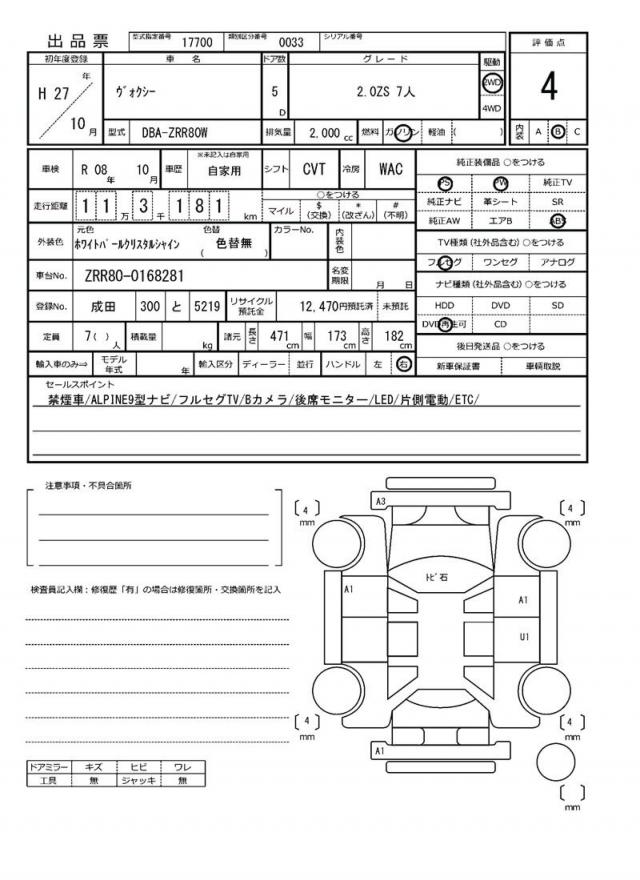 出品票 型式指定番号 17700 類別区分番号 0033 シリアル番号
評価点
4
内装 A B C
初年度登録 車名 ドア数 グレード 駆動
H 27 年 10 月 ヴォクシー 5 D 2.0ZS 7人 2WD 4WD
型式 DBA-ZRR80W 排気量 2,000 cc 燃料 ガソリン 軽油 ( )
車検 R 08 年 10 月 車歴 ※未記入は自家用 自家用 シフト CVT 冷房 WAC
走行距離 1 1 万 3 千 1 8 1 km ○をつける
マイル $(交換) *(改ざん) #(不明)
外装色 元色 ホワイトパールクリスタルシャイン 色替 ( 色替無 ) カラーNo. 内装色
車台No. ZRR80-0168281 名変期限 月 日
登録No. 成田 300 と 5219 リサイクル預託金 12,470円預託済 未預託
定員 7( ) 人 積載量 kg 諸元 長さ 471 cm 幅 173 cm 高さ 182 cm
輸入車のみ⇒ モデル年式 年 輸入区分 ディーラー 並行 ハンドル 左 右
純正装備品 ○をつける
PS PW 純正TV
純正ナビ 革シート SR
純正AW エアB ABS
TV種類(社外品含む) ○をつける
フルセグ ワンセグ アナログ
ナビ種類(社外品含む) ○をつける
HDD DVD SD
DVD再生可 CD
後日発送品 ○をつける
新車保証書 車輌取説
セールスポイント
禁煙車/ALPINE9型ナビ/フルセグTV/Bカメラ/後席モニター/LED/片側電動/ETC/
注意事項・不具合箇所
検査員記入欄：修復歴「有」の場合は修復箇所・交換箇所を記入
ドアミラー キズ ヒビ ワレ
工具 無 ジャッキ 無
[ 4 ] mm A3 [ 4 ] mm
トビ石
A1 A1
U1
[ 4 ] mm A1 [ 4 ] mm
[ ] mm